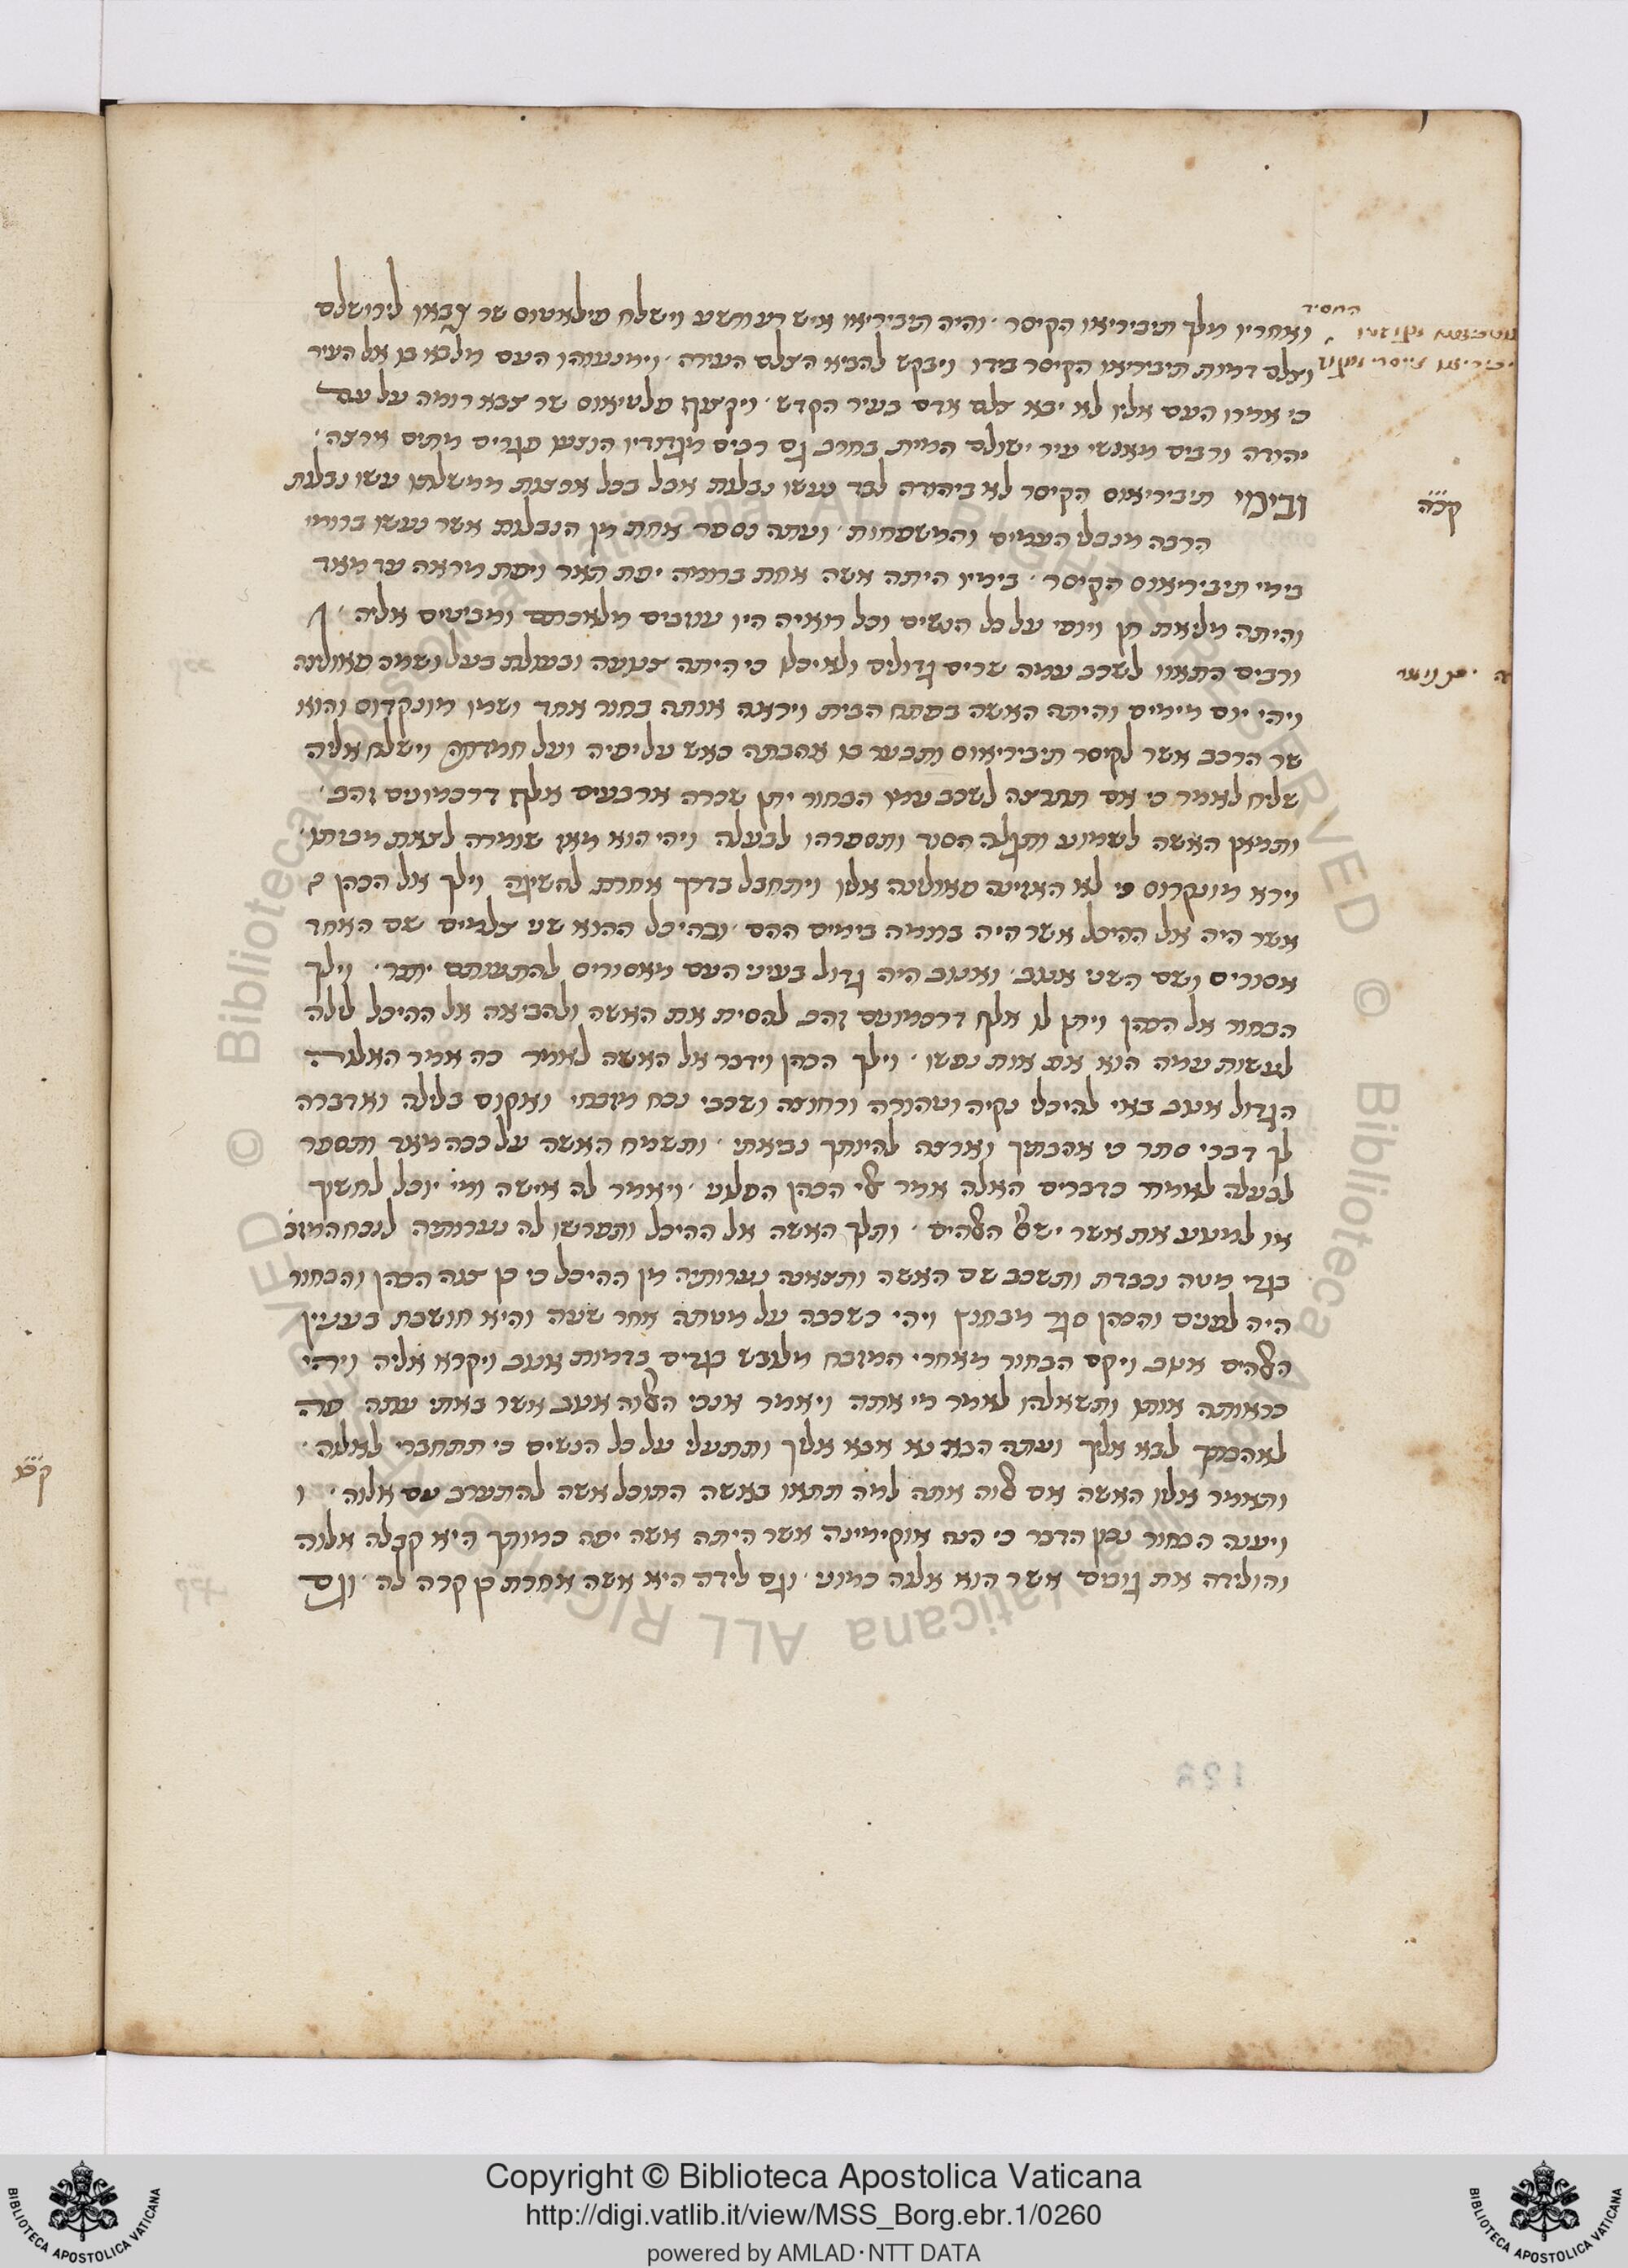 ואחריו מלך תיביריאו הקיסר והיה תיביריאו איש רע ורשע וישלח פילאטוס שר צבאו לירושלם
וצלם דמות תיביריאו הקיסר בידו ויבקש להביא הצלם העירה וימנעוהו העם מלבא בו אל העיר
כי אמרו העם אליו לא יבא צלם אדם בעיר הקדש ויקצף פלטיאוס שר צבא רומה על עם
יהודה ורבים מאנשי עיר ירושלם המית בחרב גם רבים מגדודיו הוצגו פגרים מתים ארצה
ובימי תיביריאוס הקיסר לא ביהודה לבד נעשו נבלות אבל בכל ארצות ממשלתו עשו נבלות
הרבה מנבלי העמים והמשפחות ועתה נספר אחת מן הנבלות אשר נעשו ברומי
בימי תיביריאוס הקיסר בימיו היתה אשה אחת ברומה יפת תאר ויפת מראה עד מאד
והיתה מליאת חן ויופי על כל הנשים וכל רואיה היו עוזבים מלאכתם ומביטים אליה
ורבים התאוו לשכב עמה שרים גדולים ולא יכלו כי היתה צנועה ובעולת בעל ושמה פאולינה
ויהי יום מימים והיתה האשה בפתח הבית ויראה אותה בחור אחד ושמו מונקדוס והוא
שר הרכב אשר לקיסר תיביריאוס ותבער בו אהבתה כאש על יפיה ועל חמדתה וישלח אליה
שליח לאמר כי אם תתרצה לשכב עמו הבחור יתן שכרה ארבעים אלף דרכמונים זהב
ותמאן האשה לשמוע ותגלה הסוד ותספרהו לבעלה ויהי הוא מאז שומרה לצאת מביתו
וירא מונקדוס כי לא האזינה פאולינה אליו ויתחבל בדרך אחרת להשיגה וילך אל הכהן
אשר היה אל ההיכל אשר היה ברומה בימים ההם ובהיכל ההוא שני צלמים שם האחד
אסורים ושם השני אנוב ואנוב היה גדול בעיני העם מאסורים להתענותם יותר וילך
הבחור אל הכהן ויתן לו אלף דרכמונים זהב להסית את האשה ולהביאה אל ההיכל לילה
לעשות עמה הוא את אות נפשו וילך הכהן וידבר אל האשה לאמר כה אמר האלוה
הגדול אנוב באי להיכלי נקיה וטהורה ורחוצה ושכבי נכח מזבחי ואקום בלילה ואדברה
לך דברי סתר כי אהבתיך וארצה להיותך נביאתי ותשמח האשה על ככה מאד ותספר
לבעלה לאמר כדברים האלה אמר אלי הכהן הפלוני ויאמר לה אישה ומי יוכל לחשוך
או למנוע את אשר ישאל האלהים ותלך האשה אל ההיכל ותפרשו לה נערותיה לנכח המזבח
בגדי מטה נכבדת ותשכב שם האשה ותצאנה נערותיה מן ההיכל כי כן צוה הכהן והבחור
היה לפנים והכהן סגר מבחוץ ויהי כשכבה על מטתה אחר שעה והיא חושבת בענין
האלהים אנוב ויקם הבחור מאחרי המזבח מלובש בגדים בדמות אנוב ויקרא אליה ויהי
כראותה אותו ותשאלהו לאמר מי אתה ויאמר אנכי האלוה אנוב אשר באתי עתה פה
לאהבתך לבא אליך ועתה הבא נא אבא אליך ותתעלי על כל הנשים כי תתחברי לאלוה
ותאמר אליו האשה אם אלוה אתה למה תתאו באשה התוכל אשה להתערב עם אלוה
ויענה הבחור נכון הדבר כי הנה אוקימינה אשר היתה אשה יפה כמותך היא קבלה אלוה
והולידה את גוביס אשר הוא אלוה כמוני וגם לידה היא אשה אחרת כן קרה לה וגם
קכה